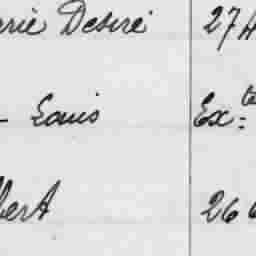 erie Desiré 27H
- Louis Ex:te
bert 266